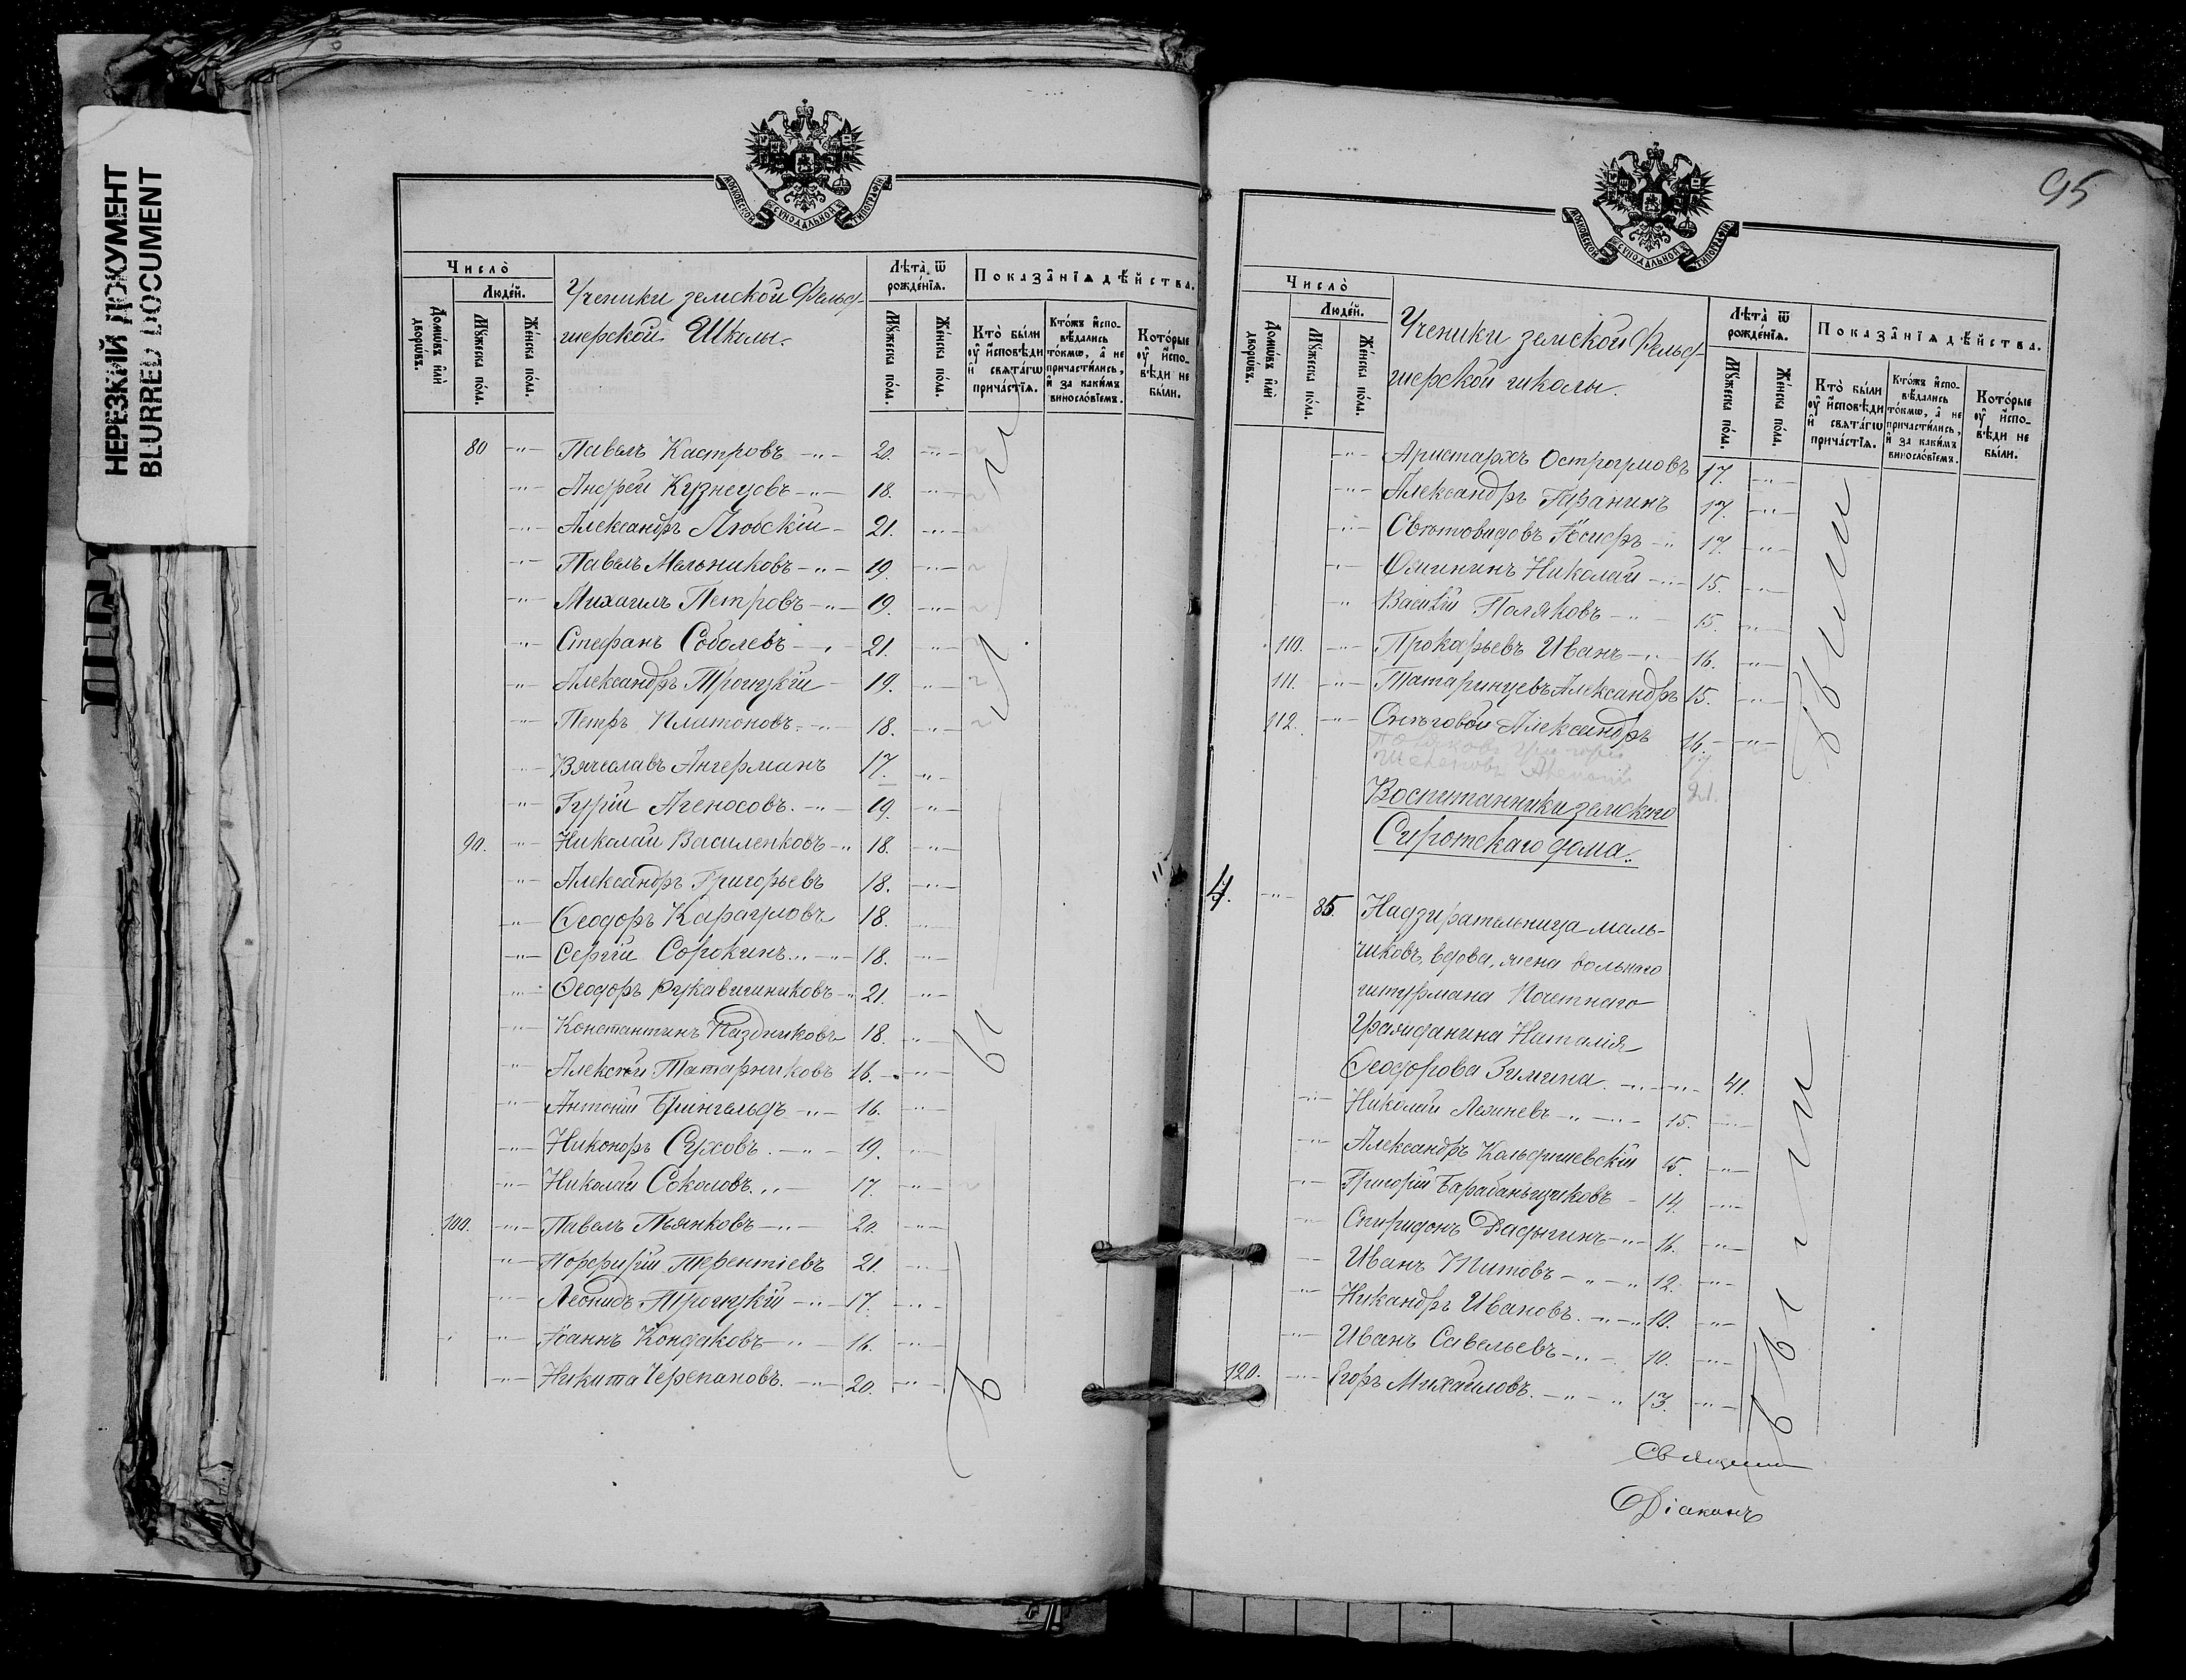 НЕРЕЗКИЙ ДОКУМЕНТ
BLURRED DOCUMENT
МОСКОВСКОЙ СѴНОДАЛЬНОЙ ТИПОГРАФІИ
Число̀
Люде́й.
Домѡ́въ и҆лѝ дворѡ́въ.
Мꙋ́жеска по́ла.
Же́нска по́ла.
Ученики земской Фельд-
шерской Школы.
Лѣта̀ ѿ рожде́нїѧ.
Мꙋ́жеска по́ла.
Же́нска по́ла.
Показа̑нїѧ дѣ́йства.
Кто̀ бы́ли ᲂу҆ и҆сповѣ́ди и҆ свѧта́гѡ прича́стїѧ.
Кто́жъ и҆спо-вѣ́дались то́кмѡ, а҆ не причасти́лись, и҆ за каки́мъ винosло́вїемъ.
Кото́рые ᲂу҆ и҆спо-вѣ́ди не бы́ли.
80 -"- Павелъ Кастровъ -"- 20. -"-
-"- Андрей Кузнецовъ -"- 18. -"-
-"- Александръ Любскій - 21. -"-
-"- Павелъ Мельниковъ -"- 19. -"-
-"- Михаилъ Петровъ -"- 19. -"-
-"- Стефанъ Соболевъ -"- 21. -"-
-"- Александръ Троицкій - 19. -"-
-"- Петръ Платоновъ -"- 18. -"-
-"- Вячеславъ Ангерманъ 17. -"-
-"- Гурій Агеносовъ. -"- 19. -"-
90. -"- Николай Василенковъ -" 18. -"-
-"- Александръ Григорьевъ 18. -"-
-"- Ѳеодоръ Карауловъ 18. -"-
-"- Сергій Сорокинъ -"- 18. -"-
-"- Ѳеодоръ Рукавишниковъ -" 21. -"-
-"- Константинъ Паздниковъ 18. -"-
-"- Алексѣй Татарниковъ 16. -"-
-"- Антоній Брингельдъ -"- 16. -"-
-"- Никоноръ Суховъ. -"- 19. -"-
-"- Николай Соколовъ. -"- 17. -"-
100. -"- Павелъ Пьянковъ -"- 20. -"-
-"- Порфирій Терентіевъ 21. -"-
-"- Леонидъ Троицкій -"- 17. -"-
-"- Іоаннъ Кондаковъ -"- 16. -"-
-"- Никита Черепановъ. -"- 20. -"-
Были
95
МОСКОВСКОЙ СѴНОДАЛЬНОЙ ТИПОГРАФІИ
Число̀
Люде́й.
Домѡ́въ и҆лѝ дворѡ́въ.
Мꙋ́жеска по́ла.
Же́нска по́ла.
Ученики земской Фельд-
шерской школы.
Лѣта̀ ѿ рожде́нїѧ.
Мꙋ́жеска по́ла.
Же́нска по́ла.
Показа̑нїѧ дѣ́йства.
Кто̀ бы́ли ᲂу҆ и҆сповѣ́ди и҆ свѧта́гѡ прича́стїѧ.
Кто́жъ и҆спо-вѣ́дались то́кмѡ, а҆ не причасти́лись, и҆ за каки́мъ винosло́вїемъ.
Кото́рые ᲂу҆ и҆спо-вѣ́ди не бы́ли.
-"- Аристархъ Остроумовъ 17. -"-
-"- Александръ Гаранинъ 17. -"-
-"- Свѣтовидовъ Іосифъ -" 17. -"-
-"- Николай -"- 15. -"-
-"- Василій Поляковъ -"- 15. -"-
110. -"- Прокофьевъ Иванъ -"- 16. -"-
111. -"- Татаринцевъ Александръ 15. -"-
112. -"- Снѣговой Александръ 16. -"-
21.
Воспитанники земскаго
Сиротскаго дома.
4. -"- 85. Надзирательница маль-
чиковъ, вдова, жена вольнаго
штурмана Почетнаго
Гражданина Наталія
Ѳеодорова Зимина. -"- 41.
-"- Николай -"- 15. -"-
-"- Александръ 15. -"-
-"- Григорій Барабаньщиковъ - 14. -"-
-"- Спиридонъ -"- 16. -"-
-"- Иванъ Титовъ -"- 12. -"-
-"- Никандръ Ивановъ. -"- 10. -"-
-"- Иванъ Савельевъ -"- 10. -"-
120. -"- Егоръ Михайловъ. -"- 13. -"-
Были
Были
Священ
Діаконъ